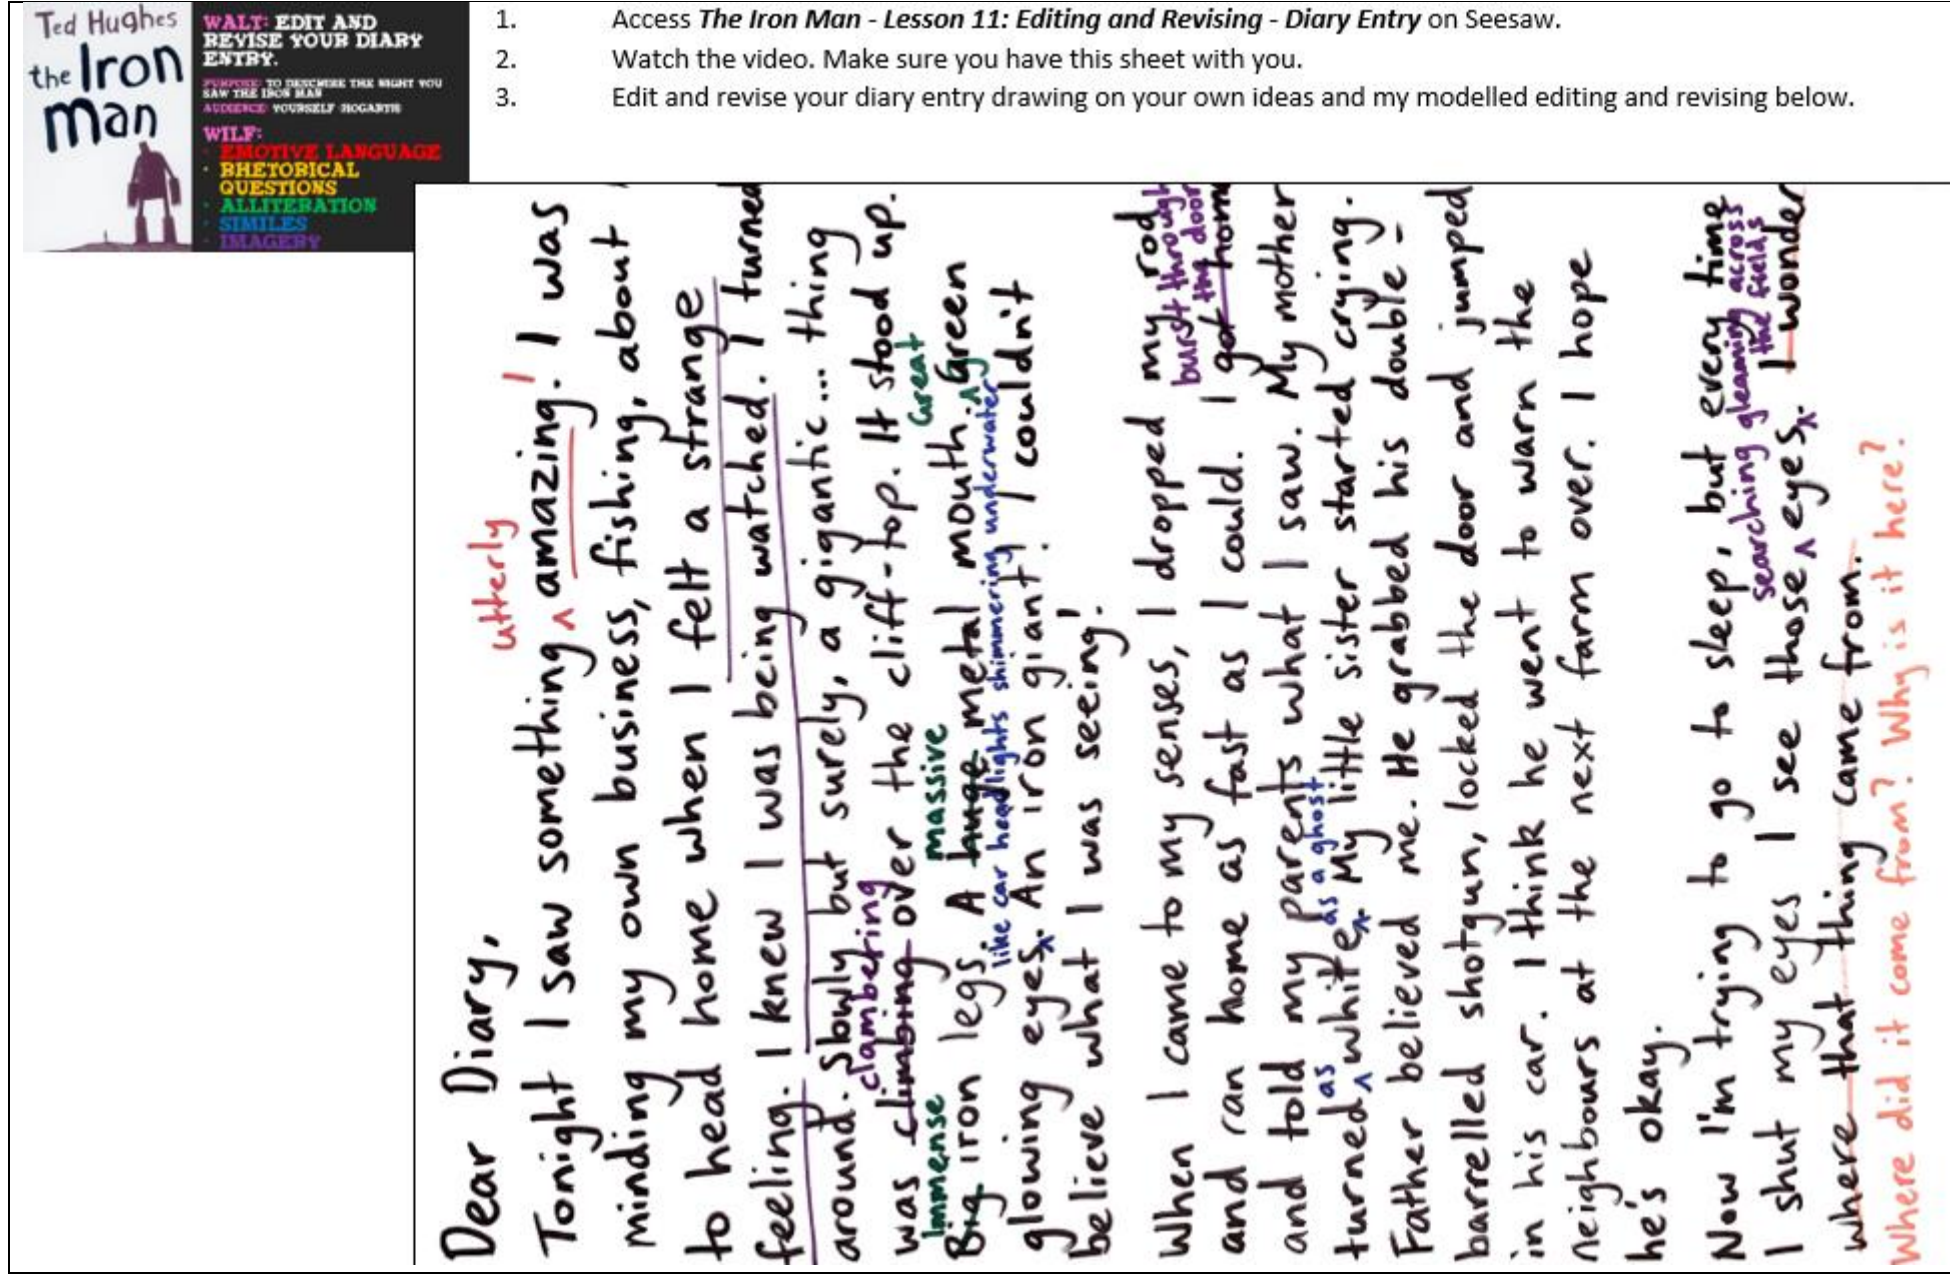 Ted Hughes
the Iron
man
WALT: EDIT AND
REVISE YOUR DIARY
ENTRY.
PURPOSE: TO DESCRIBE THE NIGHT YOU
SAW THE IRON MAN
AUDIENCE: YOURSELF - HOGARTH
WILF:
· EMOTIVE LANGUAGE
· RHETORICAL
QUESTIONS
· ALLITERATION
· SIMILES
· IMAGERY
1. Access The Iron Man - Lesson 11: Editing and Revising - Diary Entry on Seesaw.
2. Watch the video. Make sure you have this sheet with you.
3. Edit and revise your diary entry drawing on your own ideas and my modelled editing and revising below.
Dear Diary,
utterly !
Tonight I saw something ^ amazing. I was
minding my own business, fishing, about
to head home when I felt a strange
feeling. I knew I was being watched. I turned
around. Slowly but surely, a gigantic... thing
clambering
was climbing over the cliff-top. It stood up.
Immense massive Great
Big iron legs. A huge metal mouth. ^ Green
like car headlights shimmering underwater
glowing eyes ^. An iron giant! I couldn't
believe what I was seeing!
When I came to my senses, I dropped my rod
burst through
the door
and ran home as fast as I could. I got home
and told my parents what I saw. My mother
as as a ghost
turned ^ white ^. My little sister started crying.
Father believed me. He grabbed his double-
barrelled shotgun, locked the door and jumped
in his car. I think he went to warn the
neighbours at the next farm over. I hope
he's okay.
Now I'm trying to go to sleep, but every time
searching gleaming across
the fields
I shut my eyes I see those ^ eyes ^. I wonder
where that thing came from.
Where did it come from? Why is it here?